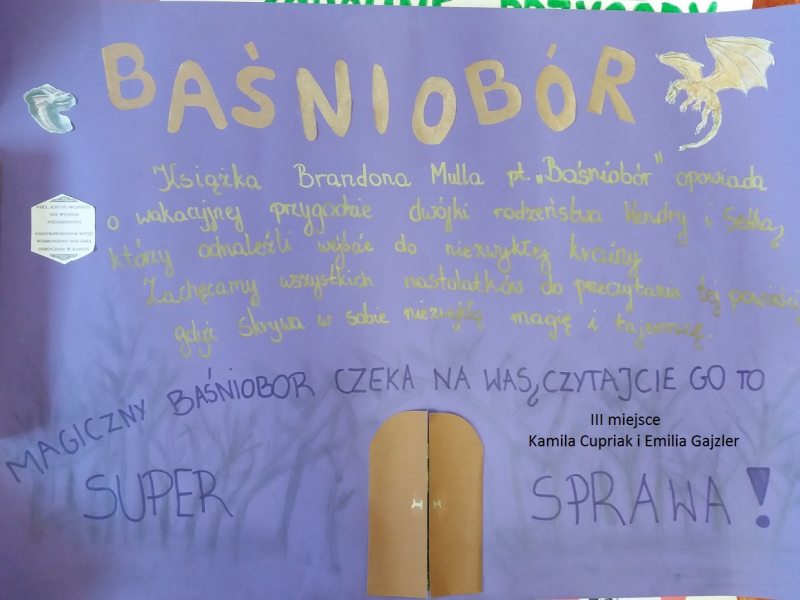 BAŚNIOBÓR
Książka Brandona Mulla pt. „Baśniobór" opowiada
o wakacyjnej przygodzie dwójki rodzeństwa Kendry i Setha,
którzy odnaleźli wejście do niezwykłej krainy
Zachęcamy wszystkich nastolatków do przeczytania tej powieści
gdyż skrywa w sobie niezwykłą magię i tajemnicę.
MAGICZNY BAŚNIOBOR CZEKA NA WAS, CZYTAJCIE GO TO
III miejsce
Kamila Cupriak i Emilia Gajzler
SUPER SPRAWA!